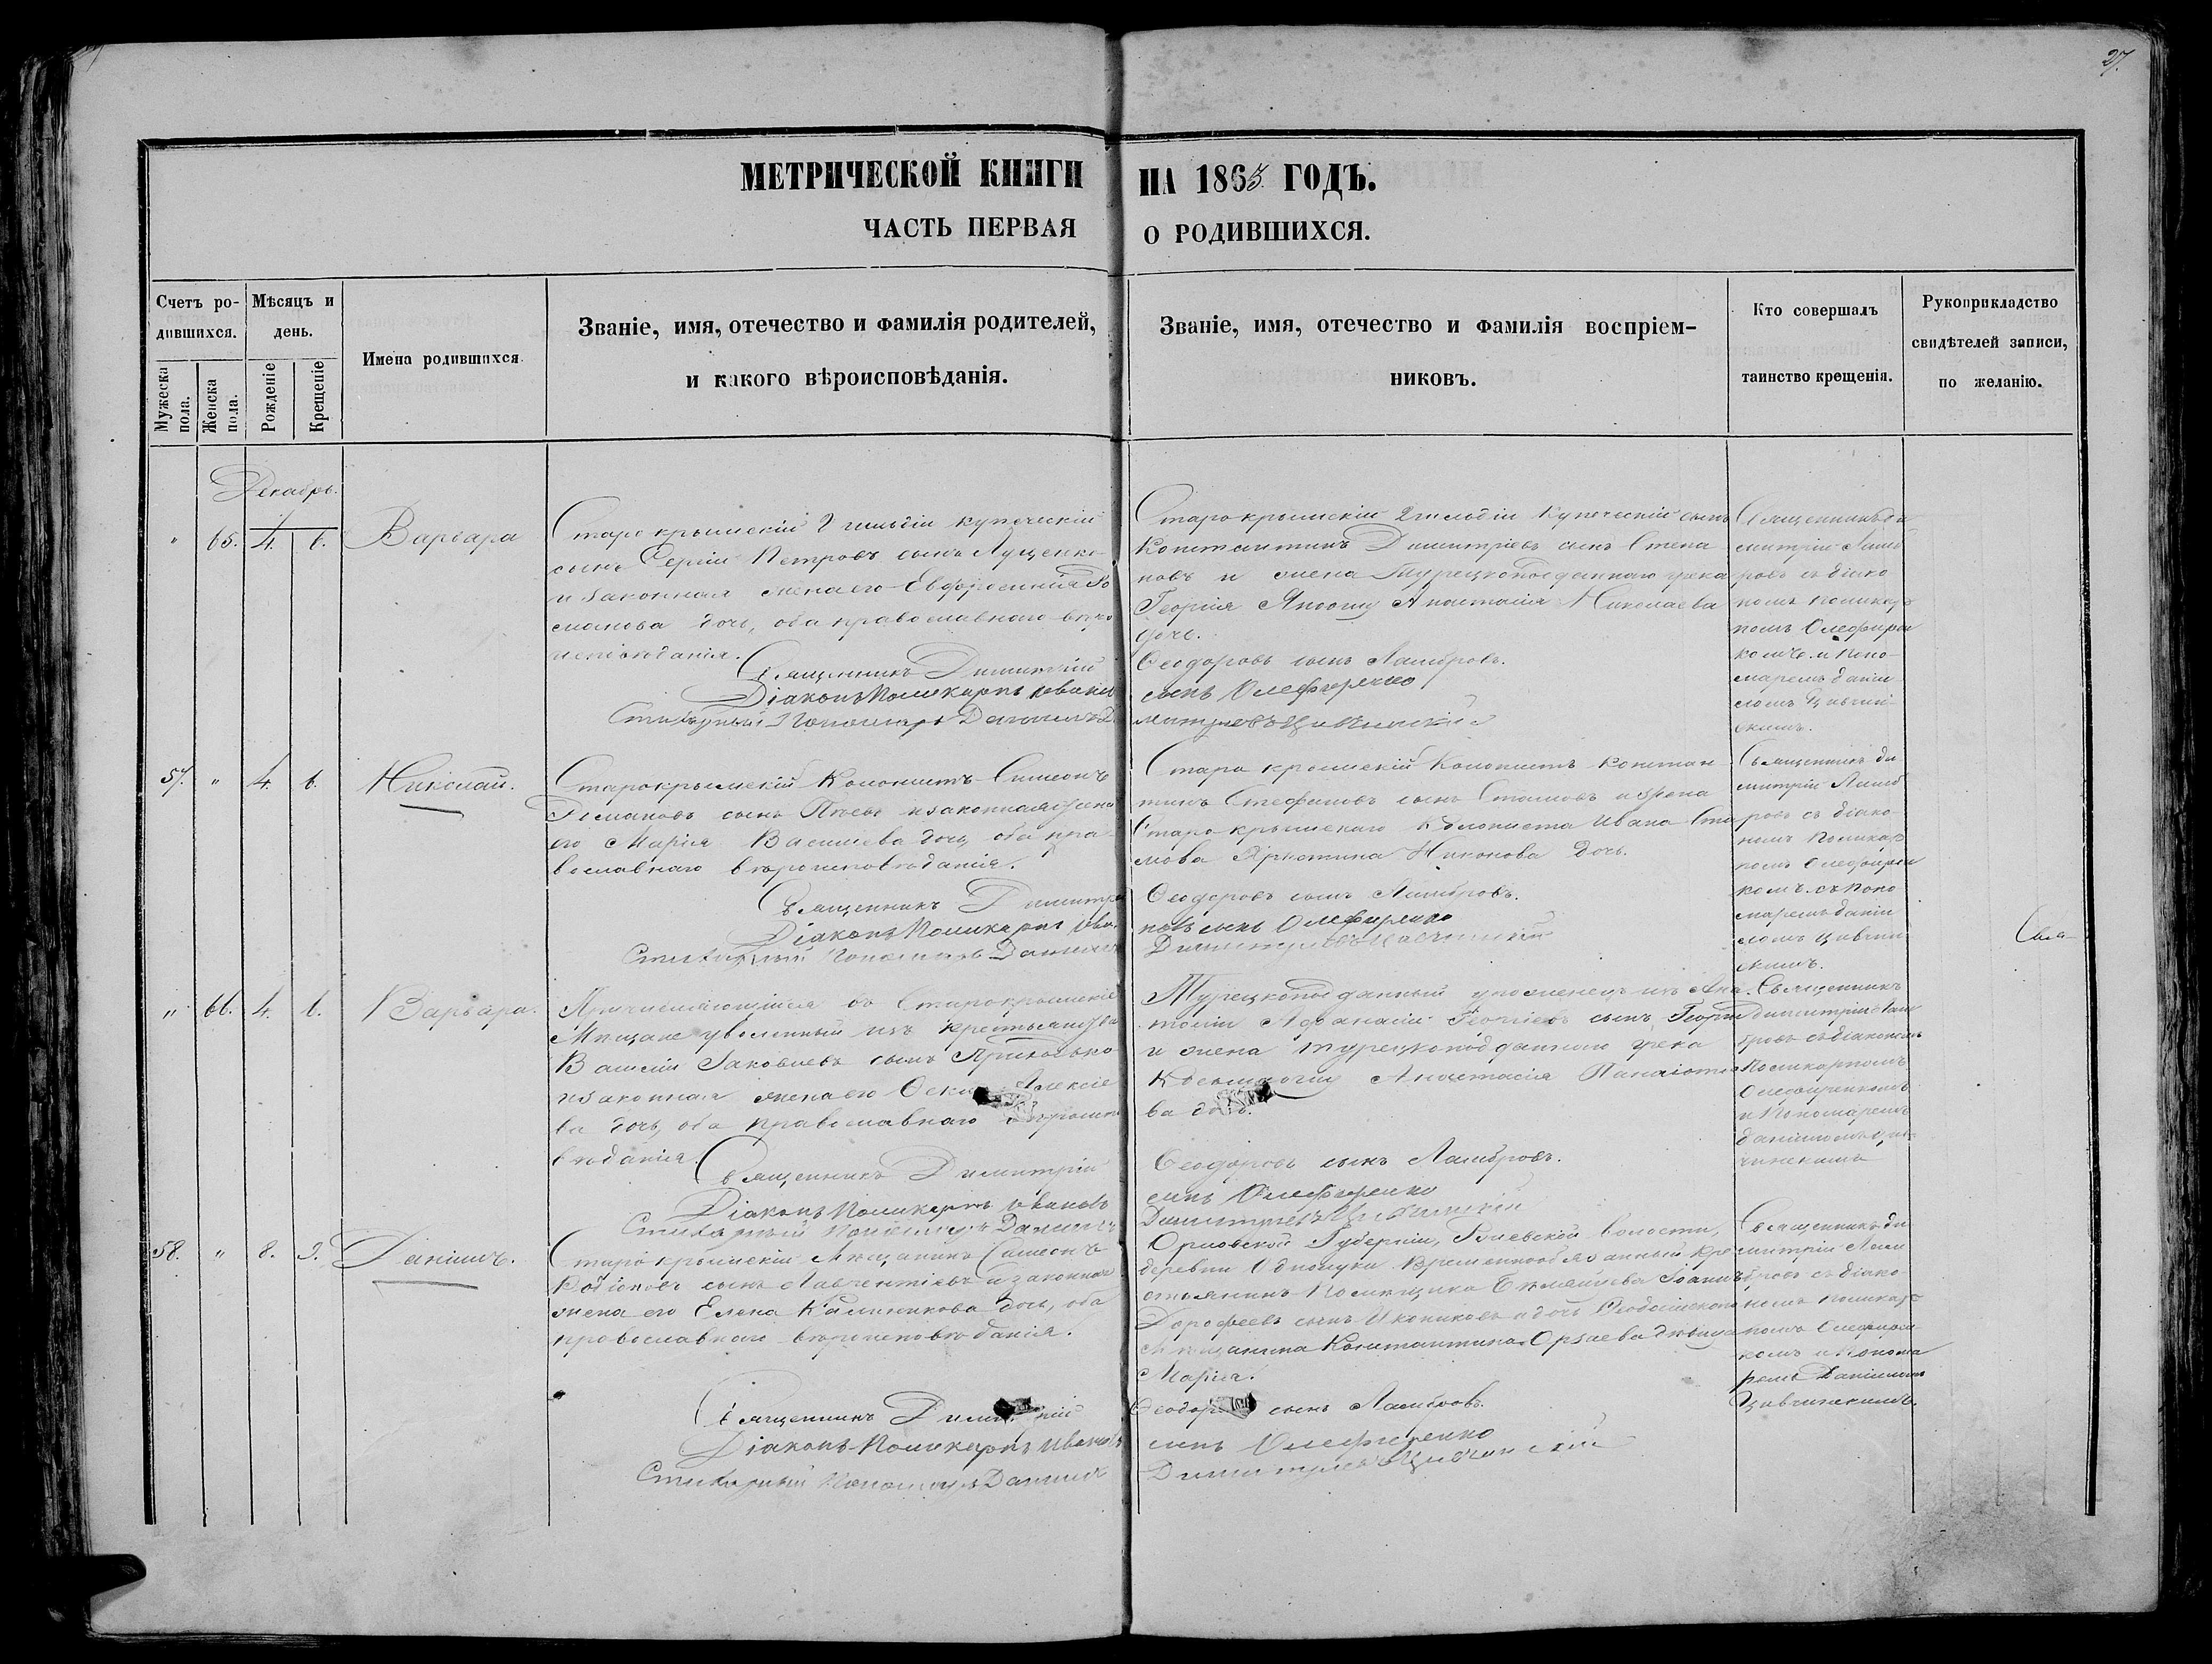 27.
МЕТРИЧЕСКОЙ КНИГИ НА 1865 ГОДЪ.
ЧАСТЬ ПЕРВАЯ О РОДИВШИХСЯ.
Счетъ родившихся.
Мѣсяцъ и день.
Имена родившихся.
Званіе, имя, отечество и фамилія родителей,
и какого вѣроисповѣданія.
Званіе, имя, отечество и фамилія воспріем-
никовъ.
Кто совершалъ
таинство крещенія.
Рукоприкладство
свидѣтелей записи,
по желанію.
Мужеска пола.
Женска пола.
Рожденіе
Крещеніе
Декабрь.
" 65. 4. 6. Варвара
Старокрымскій 2 гильдіи купеческій
сынъ Сергій Петровъ сынъ Луценко
и законная жена его Евфросинія Ро
манова дочь, оба православнаго вѣро
исповѣданія.
Священникъ Димитрій
Діаконъ Поликарпъ Иванов
Стихарный Пономарь Даніилъ
Старокрымскій 2 гильдіи купеческій сынъ
Константинъ Димитріевъ сынъ Степа
новъ и жена Турецкоподданнаго грека
Георгія Анастасія Николаева
дочь.
Ѳеодоровъ сынъ Ламбровъ.
сынъ Олефиренко
Священникъ Ди
митрій Ламб
ровъ съ діако
номъ Поликар
помъ Олефирен
комъ и поно-
маремъ Даніи
ломъ
57. " 4. 6. Николай.
Старокрымскій Колонистъ Симеонъ
сынъ и законная жена
его Марія Васильева дочь, оба пра-
вославнаго вѣроисповѣданія.
Священникъ Димитрі
Діаконъ Поликарпъ Ива
Стихарный Пономарь Даніилъ
Старокрымскій Колонистъ Констан
тинъ Стефановъ сынъ Стамовъ и жена
Старокрымскаго Колониста Ивана Ста
мова Никонова дочь.
Ѳеодоровъ сынъ Ламбровъ.
новъ сынъ Олефиренко
Священникъ Ди
митрій Ламб
ровъ съ діако
номъ Поликар
помъ Олефирен
комъ съ поно
маремъ Даніи
ломъ
" 66. 4. 6. Варвара.
Причисляющійся въ Старокрымскіе
Мѣщане уволенный изъ крестьянства
Василій Іаковлевъ сынъ Приходько
и законная жена его Алексіе
ва дочь, оба православнаго вѣроиспо
вѣданія.
Священникъ Димитрій
Діаконъ Поликарпъ Ивановъ
Стихарный Пономарь Даніилъ
Турецкоподданный уроженецъ изъ Ана
толіи Аѳанасій Георгіевъ сынъ
и жена турецкоподданнаго грека
Анастасія Панаіотіе
ва дочь.
Ѳеодоровъ сынъ Ламбровъ.
сынъ Олефиренко
Священникъ
Димитрій Ламб
ровъ съ діакономъ
Поликарпомъ
Олефиренкомъ
и Пономаремъ
Даніиломъ
58. " 8. 9. Даніилъ.
Старокрымскій Мѣщанинъ Симеонъ
Родіоновъ сынъ Лаврентіевъ и законная
жена его Елена Калинникова дочь, оба
православнаго вѣроисповѣданія.
Священникъ
Діаконъ Поликарпъ Ивановъ
Стихарный Пономарь Даніилъ
Орловской Губерніи, волости,
деревни Временнообязанный кре
стьянинъ Помѣщика Іоаннъ
Дорофеевъ сынъ и дочь Ѳеодосійскаго
Мѣщанина Константина дѣвица
Марія.
сынъ Ламбровъ.
сынъ Олефиренко
Священникъ Ди
митрій Ламб
ровъ съ діако
номъ Поликар
помъ Олефирен
комъ и Понома
ремъ Даніиломъ